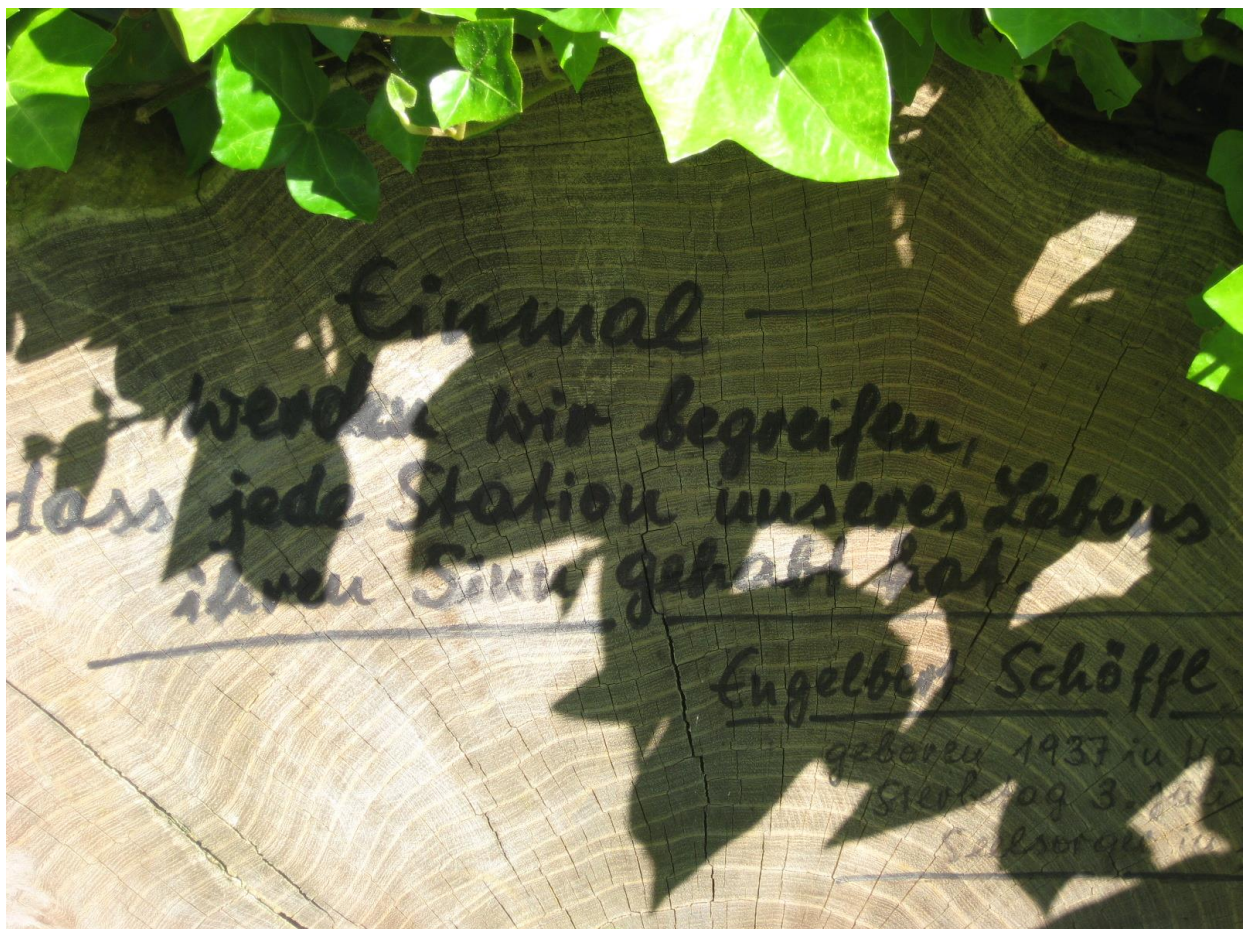 — Einmal —
werden wir begreifen,
dass jede Station unseres Lebens
ihren Sinn gehabt hat.
Engelbert Schöffl
geboren 1937 in Ha
Sterbetag 3. Juli
Seelsorger in